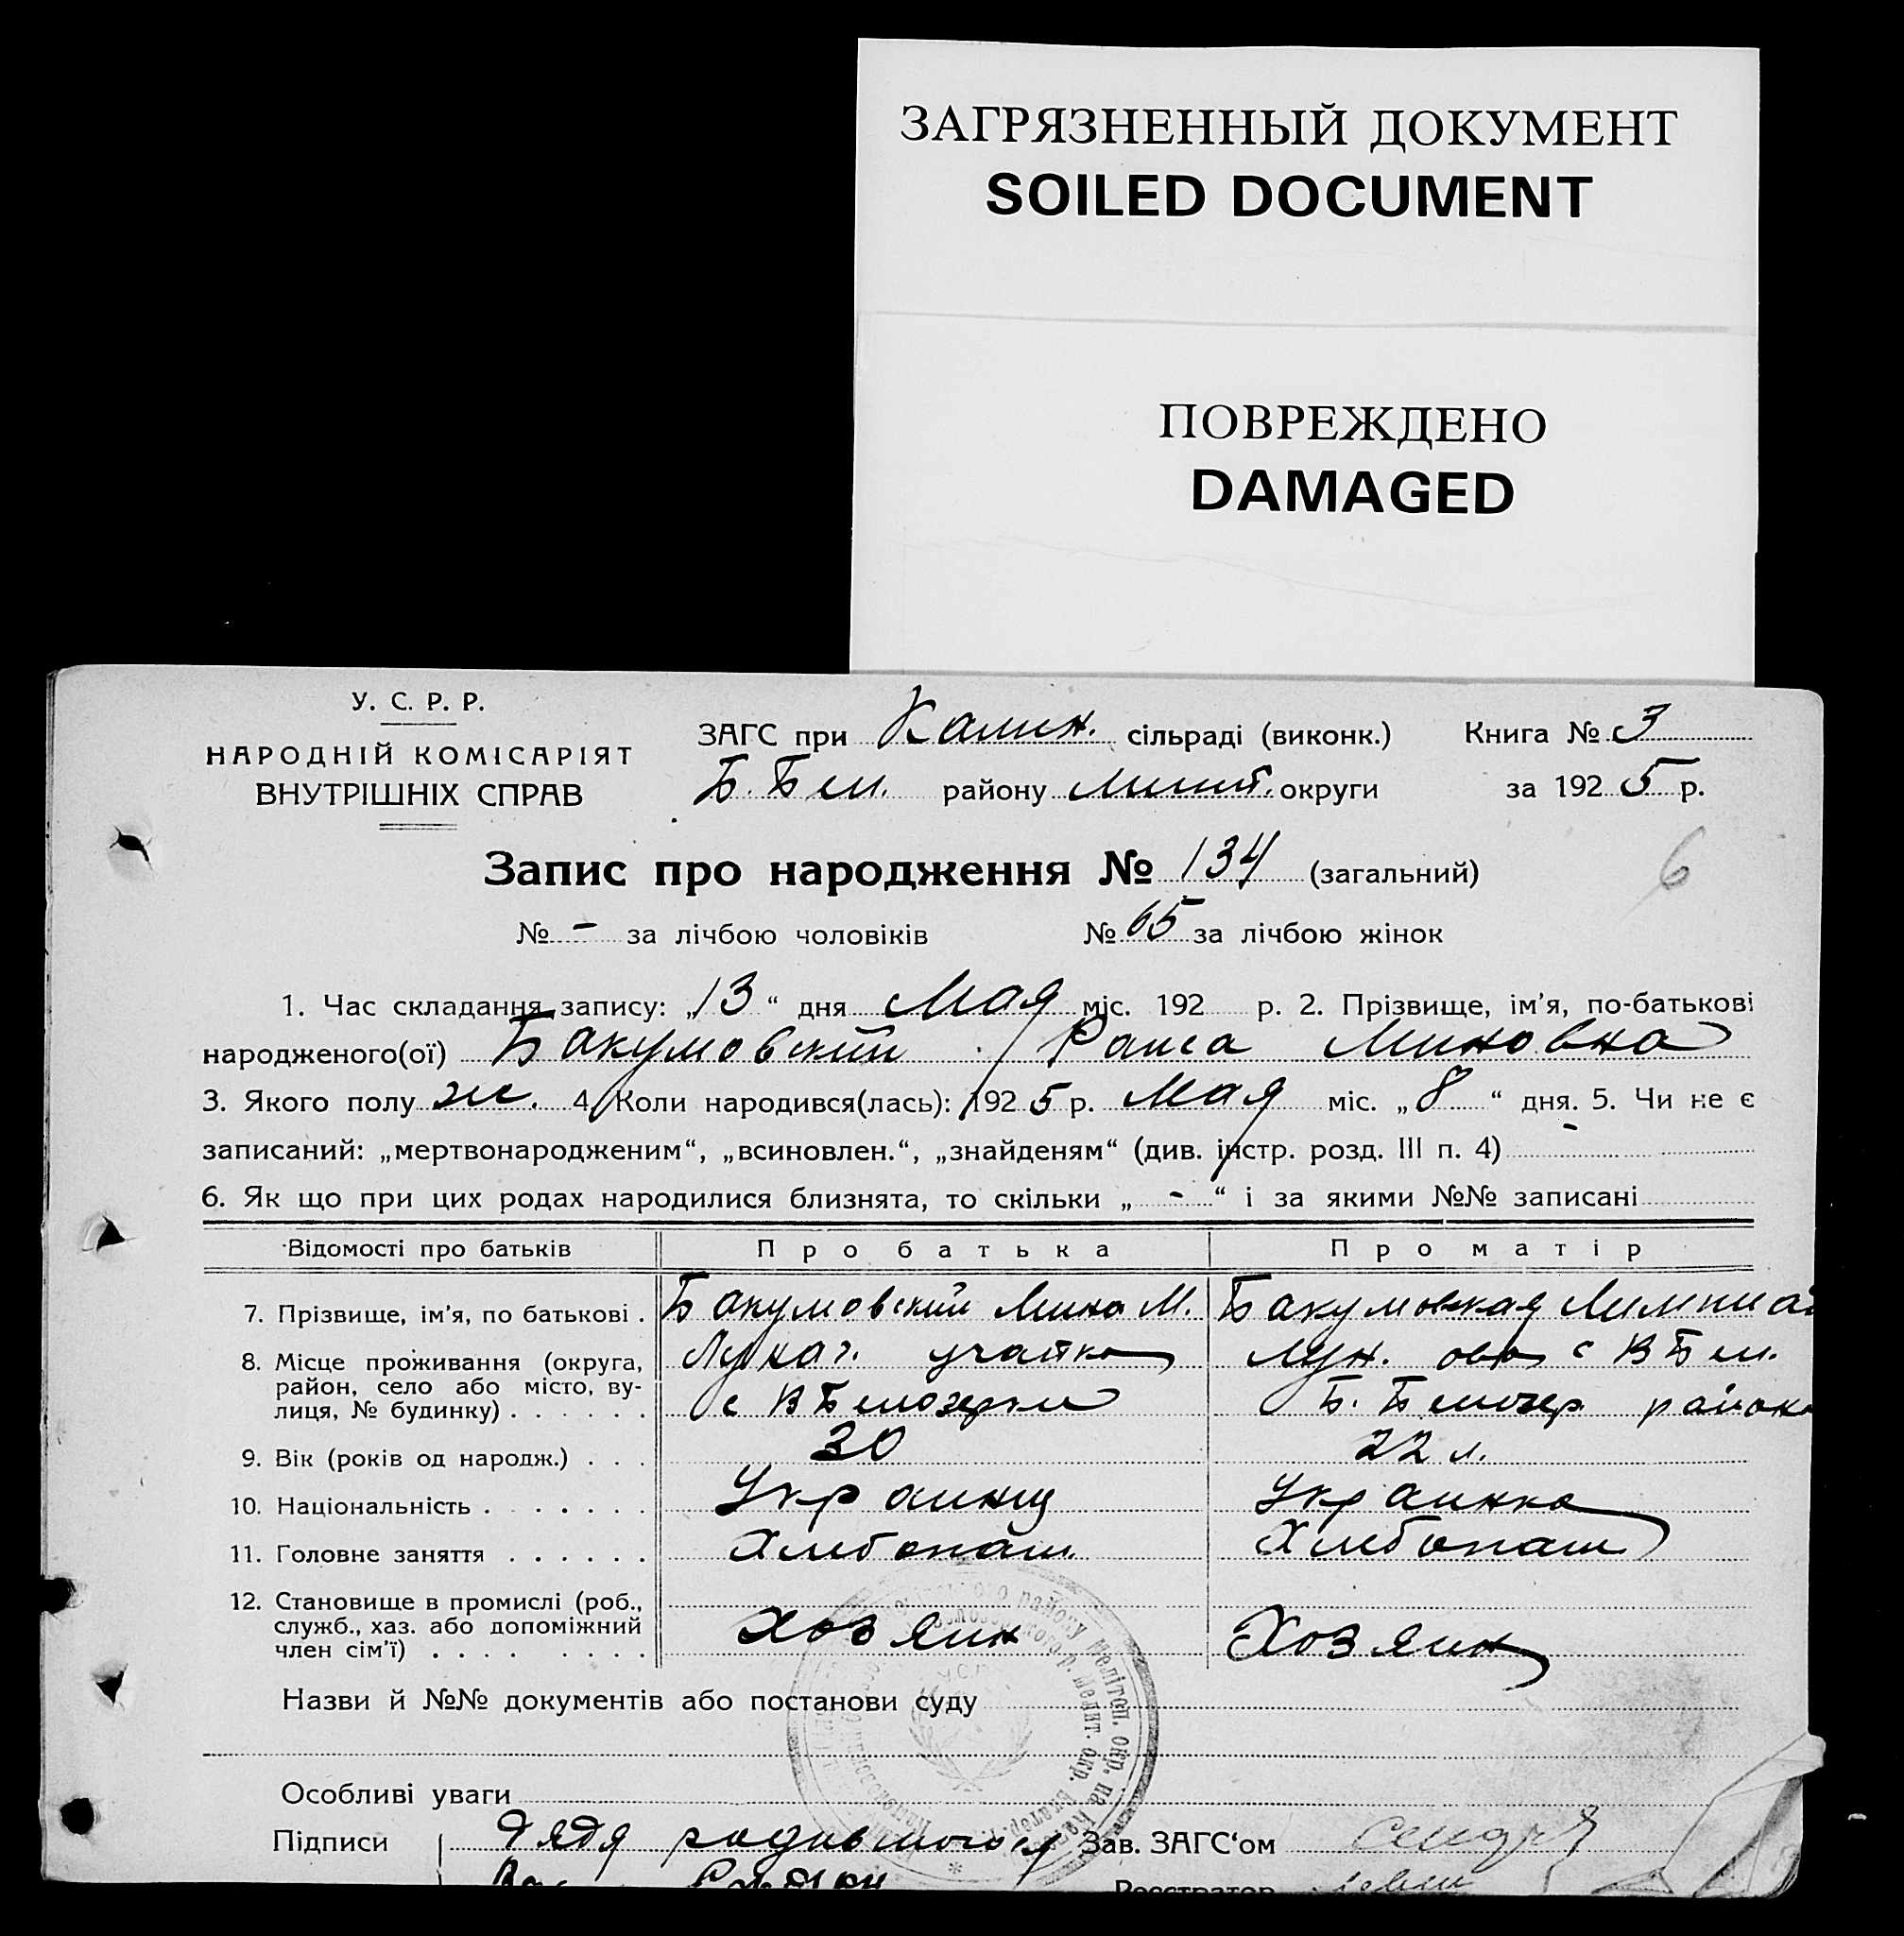 ЗАГРЯЗНЕННЫЙ ДОКУМЕНТ
SOILED DOCUMENT
ПОВРЕЖДЕНО
DAMAGED
У. С. Р. Р.
НАРОДНІЙ КОМІСАРІЯТ
ВНУТРІШНІХ СПРАВ
ЗАГС при Калин. сільраді (виконк.) Книга № 3
Б. Бел. району Мелит. округи за 1925 р.
Запис про народження № 134 (загальний)
6
№ - за лічбою чоловіків № 65 за лічбою жінок
1. Час складання запису: „13“ дня Мая міс. 192 р. 2. Прізвище, ім'я, по-батькові
народженого(ої) Бакумовский Раиса Миновна
3. Якого полу ж. 4. Коли народився(лась): 1925 р. Мая міс. „8“ дня. 5. Чи не є
записаний: „мертвонародженим“, „всиновлен.“, „знайденям“ (див. інстр. розд. III п. 4) -
6. Як що при цих родах народилися близнята, то скільки „-“ і за якими №№ записані
Відомості про батьків Про батька Про матір
7. Прізвище, ім'я, по батькові . Бакумовский Мина М. Бакумовская
8. Місце проживання (округа, район, село або місто, вулиця, № будинку) . . . . . . участка с В Белозерки с В Бел. Б. Белозер района
9. Вік (років од народж.) . . . 30 22 л.
10. Національність . . . . . . . Украинц Украинка
11. Головне заняття . . . . . . Хлебопаш. Хлебопаш
12. Становище в промислі (роб., служб., хаз. або допоміжний член сім'ї) . . . . . . . . Хозяин Хозяин
Назви й №№ документів або постанови суду
Особливі уваги
Підписи Дядя родившогося Зав. ЗАГС'ом
Реєстратор